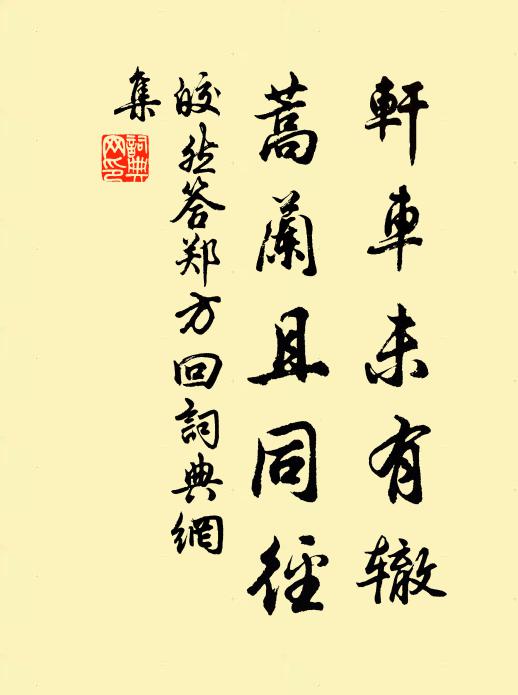 軒車未有辙
蒿蘭且同徑
皎然答郑方回詞典網
集
詞典
网印